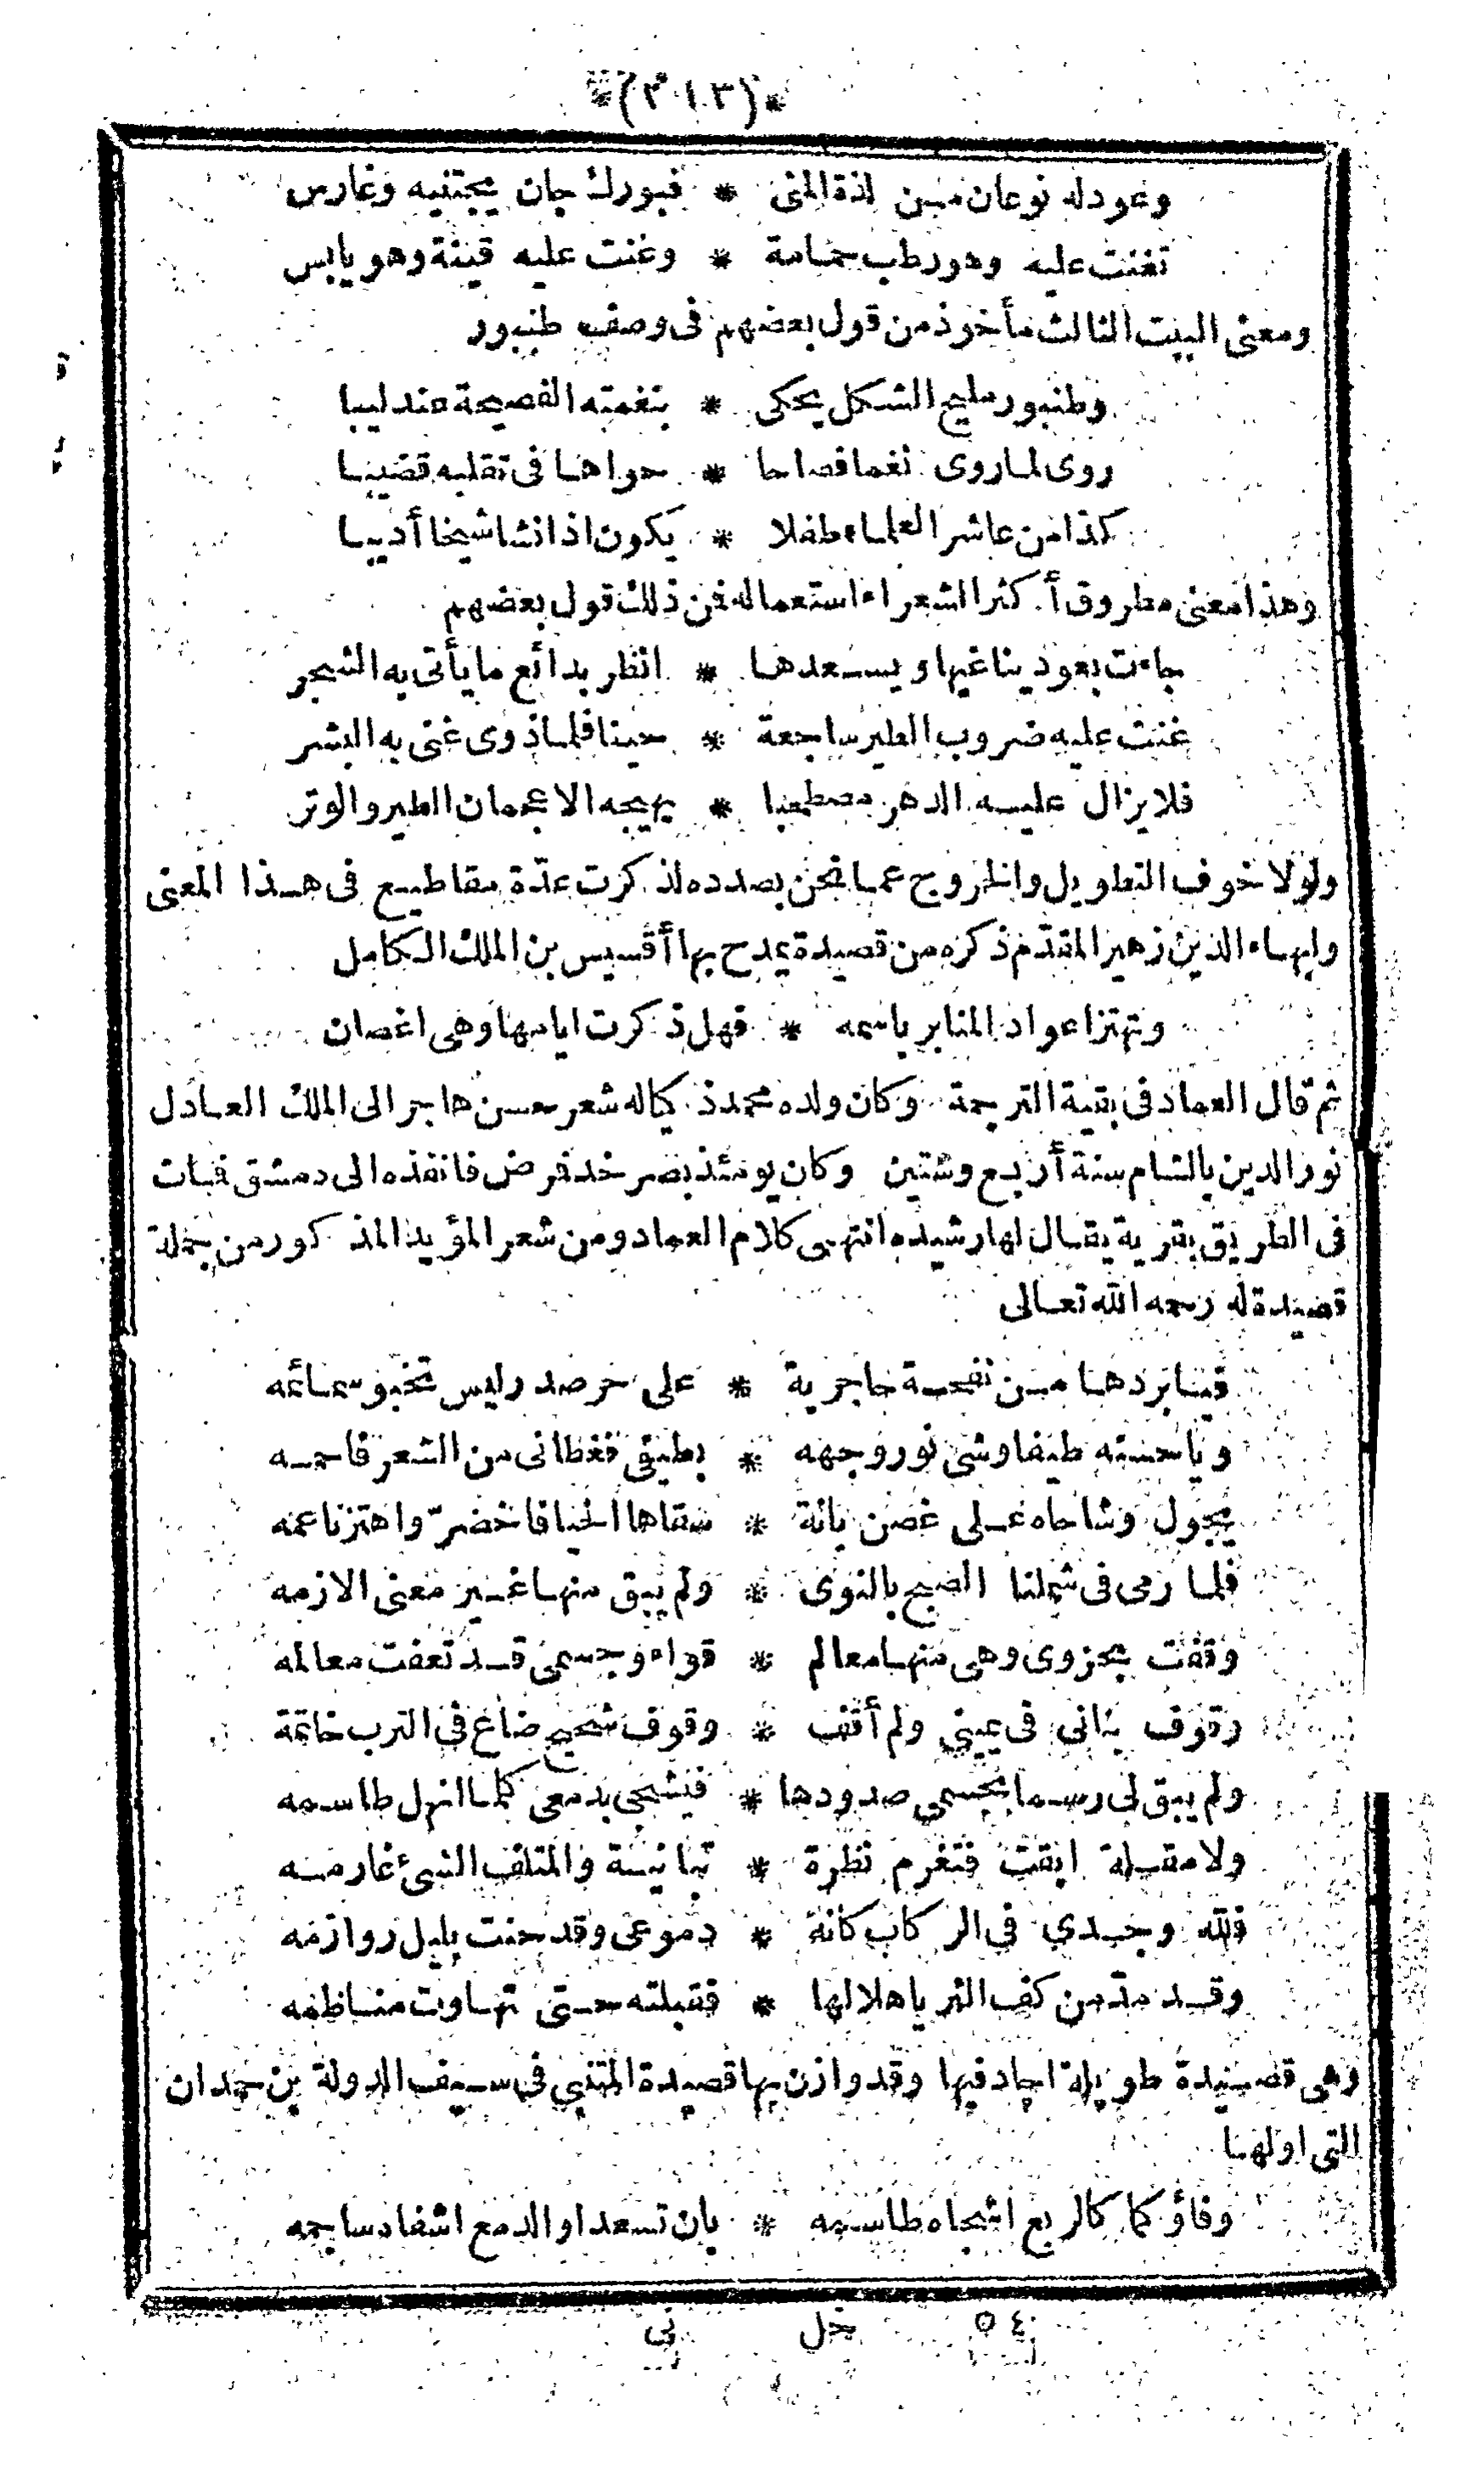 *(٣١٣)*
وعود له نوعان مـن لذة المنى * فبورك جان يجتنيه وغارس
تغنت عليه وهو رطب حمامة * وغنت عليه قينة وهو يابس
ومعنى البيت الثالث مأخوذ من قول بعضهم فى وصف طنبور
وطنبور مليح الشكل يحكى * بنغمته الفصيحة عندليبا
روى لما روى نغما فصاحا * حواها فى تقلبه قضيبا
كذا من عاشر العلماء طفلا * يكون اذا نشا شيخا أديبا
وهذا معنى مطروق أكثر الشعراء استعماله فمن ذلك قول بعضهم
جاءت بعود يناغيها ويسعدها * انظر بدائع ما يأتى به الشجر
غنت عليه ضروب الطير ساجعة * حينا فلما ذوى غنى به البشر
فلا يزال عليه الدهر مصطحبا * يهيجه الاعجمان الطير والوتر
ولولا خوف التطويل والخروج عما نحن بصدده لذكرت عدّة مقاطيع فى هذا المعنى
ولبهاء الدين زهير المقدّم ذكره من قصيدة يمدح بها أقسيس بن الملك الكامل
وتهتز اعواد المنابر باسمه * فهل ذكرت ايامها وهى اغصان
ثم قال العماد فى بقية الترجمة وكان ولده محمد ذكيا له شعر حسن هاجر الى الملك العادل
نور الدين بالشام سنة أربع وستين وكان يومئذ بصرخد فمرض فانفذه الى دمشق فمات
فى الطريق بقرية يقال لها رشيده انتهى كلام العماد ومن شعر المؤيد المذكور من جملة
قصيدة له رحمه الله تعالى
فيا بردها من نفحة حاجرية * على حر صدر ليس تخبو سمائمه
ويا حسنه طيفا وشى نور وجهه * بطيفى فغطانى من الشعر فاحمه
يجول وشاحاه على غصن بانة * سقاها الحيا فاخضرّ واهتز ناعمه
فلما رمى فى شملنا الصبح بالنوى * ولم يبق منها غير معنى الازمه
وقفت بحزوى وهى منها معالم * قواء وجسمى قد تعفت معالمه
وقوف بنانى فى يمينى ولم أقف * وقوف شحيح ضاع فى الترب خاتمة
ولم يبق لى رسما بجسمى صدودها * فيشجى بدمعى كلما انهل طاسمه
ولا مقلة ابقت فتغرم نظرة * بثانية والمتلف الشئ غارمه
فلله وجدى فى الركاب كانه * دموعى وقد حنت بليل روازمه
وقد مدّ من كف الثريا هلالها * فقبلته حتى تهاوت مناظمه
وهى قصيدة طويلة اجاد فيها وقد وازن بها قصيدة المتنبى فى سيف الدولة بن حمدان
التى اولها
وفاؤكما كالربع اشجاه طاسمه * بان تسعدا والدمع اشفاه ساجمه
٤٠ خل نى